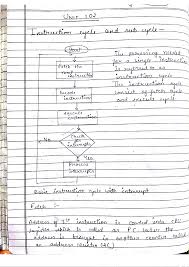 Unit 102
Instruction cycle and sub cycle -
Start
The processing needed
for a single instruction
is referred to as
an instruction cycle.
The instruction cycle
consist of fetch cycle
and execute cycle.
Fetch the
next
instruction
Decode
instruction
Execute
instruction
Check
interrupt
Process
interrupt
Basic instruction cycle with interrupt
Fetch :-
Address of 1st instruction is
which is called as PC. Later the
address is brought in another
as address